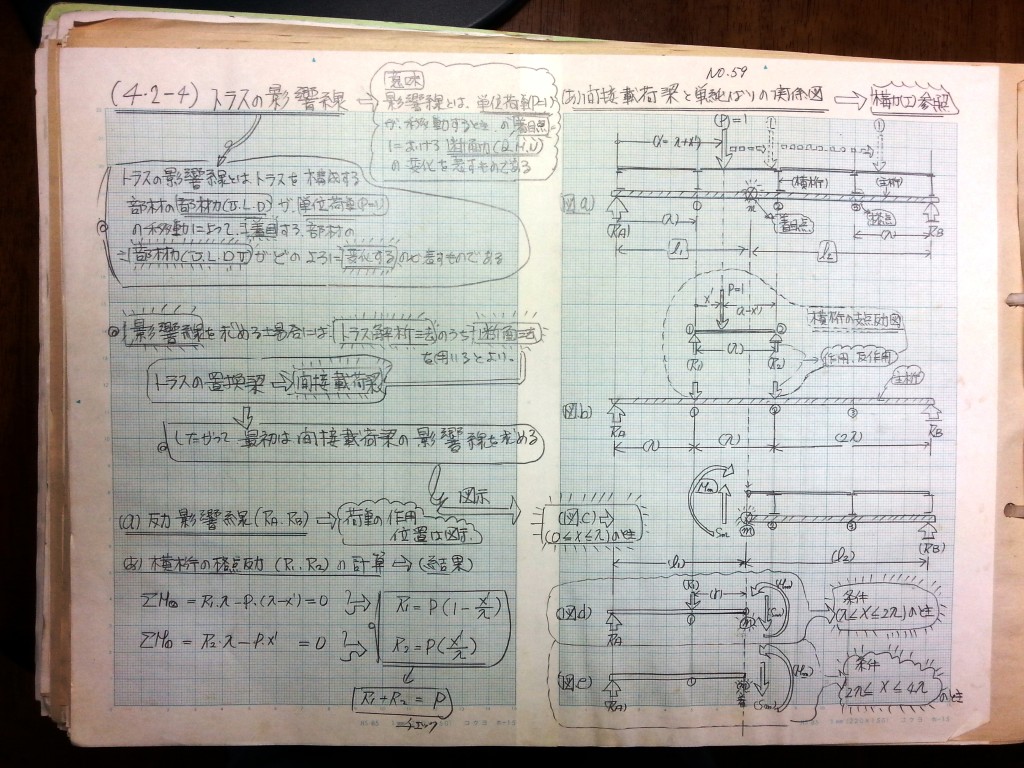 (4.2-4) トラスの影響線
意味
影響線とは、単位荷重(P=1)
が、移動するときの着目点
における断面力(Q.M.N)
の変化を表すものである
トラスの影響線とはトラスを構成する
部材の部材力(U.L.D)が、単位荷重(P=1)
の移動によって、着目する、部材の
部材力(U.L.D)がどのように変化するのを表すものである
影響線を求める場合には、トラス解析法のうち断面法
を用いるとよい。
トラスの置換梁 → 間接載荷梁
したがって 最初は間接載荷梁の影響線を求める
図示
(a) 反力影響線(RA.RB)
荷重の作用
位置は図示
(b) 横桁の格点反力(R1.R2)の計算 → (結果)
ΣM② = R1.λ-P.(λ-x')=0
R1 = P(1-x'/λ)
ΣM① = R2.λ-P.x' = 0
R2 = P(x'/λ)
R1+R2 = P
チェック
NO.59
(あ)間接載荷梁と単純ばりの関係図
参照
P=1
(x=λ+x')
(横桁)
(主桁)
図a)
m
着目点
格点
(RA)
RB
(λ)
l1
l2
P=1
x'
(λ-x')
横桁の支点反力図
(λ)
(R1)
(R2)
作用.反作用
主桁
図.b)
RA
RB
(λ)
(λ)
(2λ)
Mm
Sm
(図.C)
(0≦x≦λ)のとき
m
(RB)
(l1)
(l2)
(R1)
(図d)
RA
条件
(λ≦x≦2λ)のとき
(図.e)
(RA)
(Sm)
(Mm)
条件
2λ≦x≦4λ
のとき